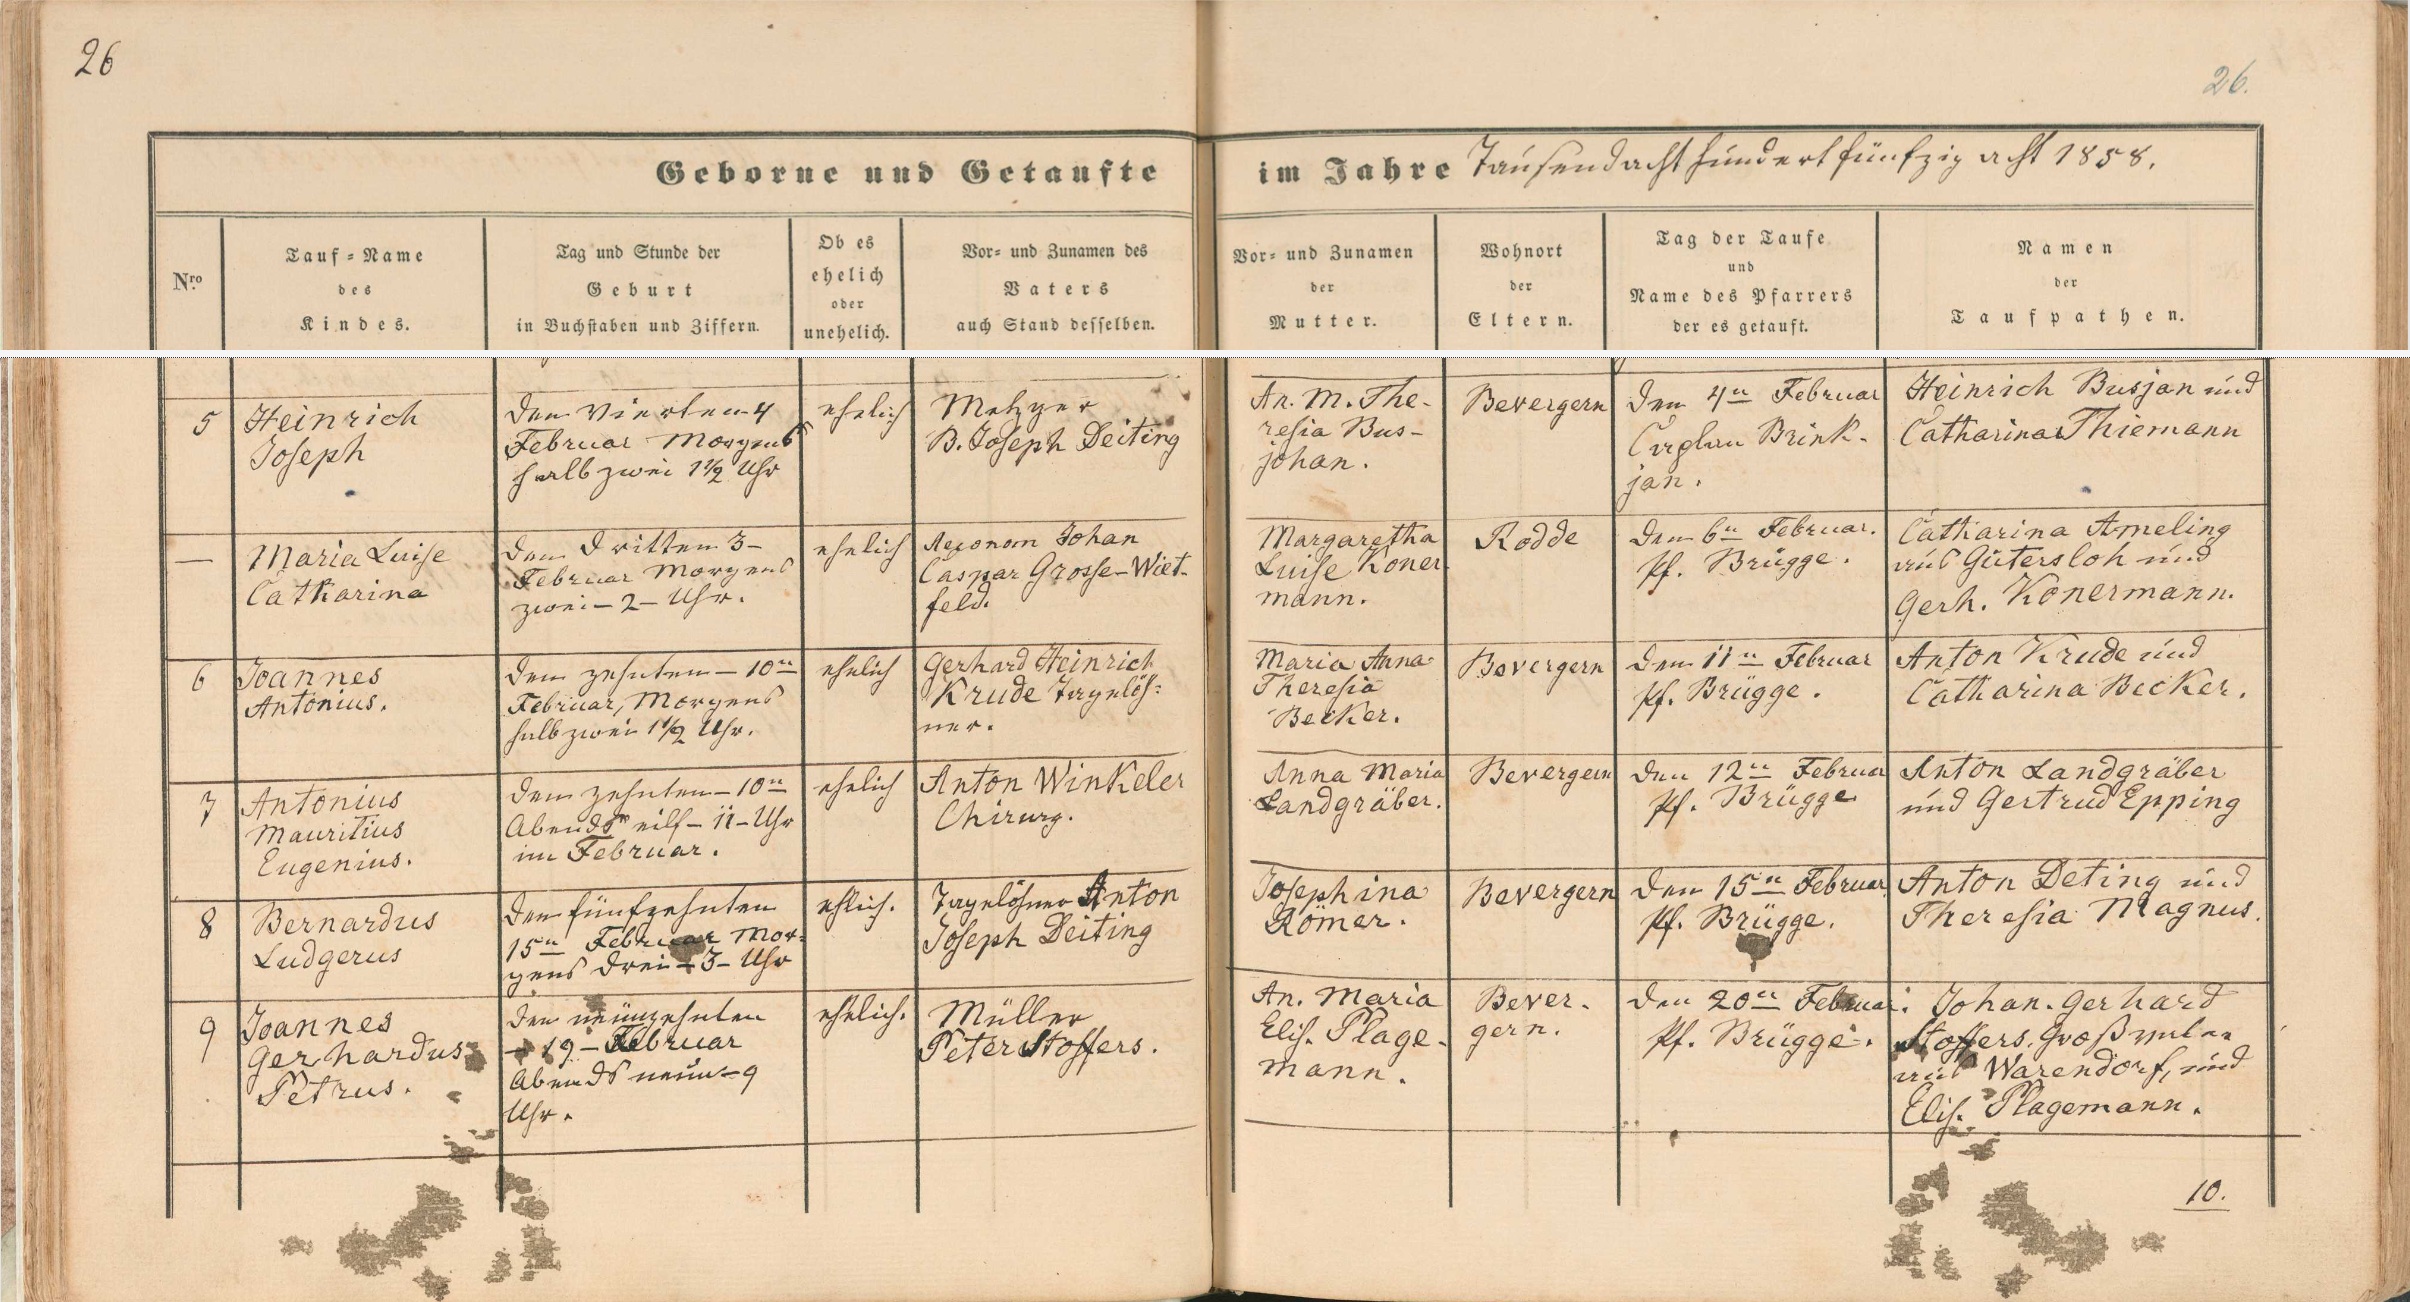 26
26.
Geborne und Getaufte im Jahre Tausendacht hundert fünfzig acht 1858.
Nro
Tauf-Name
des
Kindes.
Tag und Stunde der
Geburt
in Buchstaben und Ziffern.
Ob es
ehelich
oder
unehelich.
Vor- und Zunamen des
Vaters
auch Stand desselben.
Vor- und Zunamen
der
Mutter.
Wohnort
der
Eltern.
Tag der Taufe
und
Name des Pfarrers
der es getauft.
Namen
der
Taufpathen.
5
Heinrich
Joseph
Den Vierten 4
Februar Morgens
halb zwei 1½ Uhr
ehelich
Metzger
B. Joseph Deiting
An. M. The-
resia Bus-
johan.
Bevergern
Den 4n Februar
Caplan Brink-
jan.
Heinrich Busjan und
Catharina Thiemann
—
Maria Luise
Catharina
Den Dritten 3-
Februar Morgens
zwei - 2 - Uhr.
ehelich
Aeconom Johan
Caspar Grosse-Wiet-
feld.
Margaretha
Luise Koner-
mann.
Rodde
Den 6n Februar.
Pf. Brügge.
Catharina Ameling
aus Gütersloh und
Gerh. Konermann.
6
Joannes
Antonius.
Den zehnten - 10n
Februar, Morgens
halb zwei 1½ Uhr.
ehelich
Gerhard Heinrich
Krude Tagelöh-
ner.
Maria Anna
Theresia
Becker.
Bevergern
Den 11n Februar
Pf. Brügge.
Anton Krude und
Catharina Becker.
7
Antonius
Mauritius
Eugenius.
Den zehnten - 10n
Abends eilf - 11 - Uhr
im Februar.
ehelich
Anton Winkeler
Chirurg.
Anna Maria
Landgräber.
Bevergern
Den 12n Februar
Pf. Brügge
Anton Landgräber
und Gertrud Epping
8
Bernardus
Ludgerus
Den fünfzehnten
15n Februar Mor-
gens drei - 3 - Uhr
ehlich.
Tagelöhner Anton
Joseph Deiting
Josephina
Römer.
Bevergern
Den 15n Februar
Pf. Brügge.
Anton Deting und
Theresia Magnus.
9
Joannes
Gerhardus
Petrus.
Den neunzehnten
- 19 - Februar
Abends neun - 9
Uhr.
ehelich.
Müller
Peter Stoffers.
An. Maria
Elis. Plage-
mann.
Bever-
gern.
Den 20n Februar.
Pf. Brügge.
Johan. Gerhard
Stoffers, Großvater
aus Warendorf, und
Elis. Plagemann.
10.